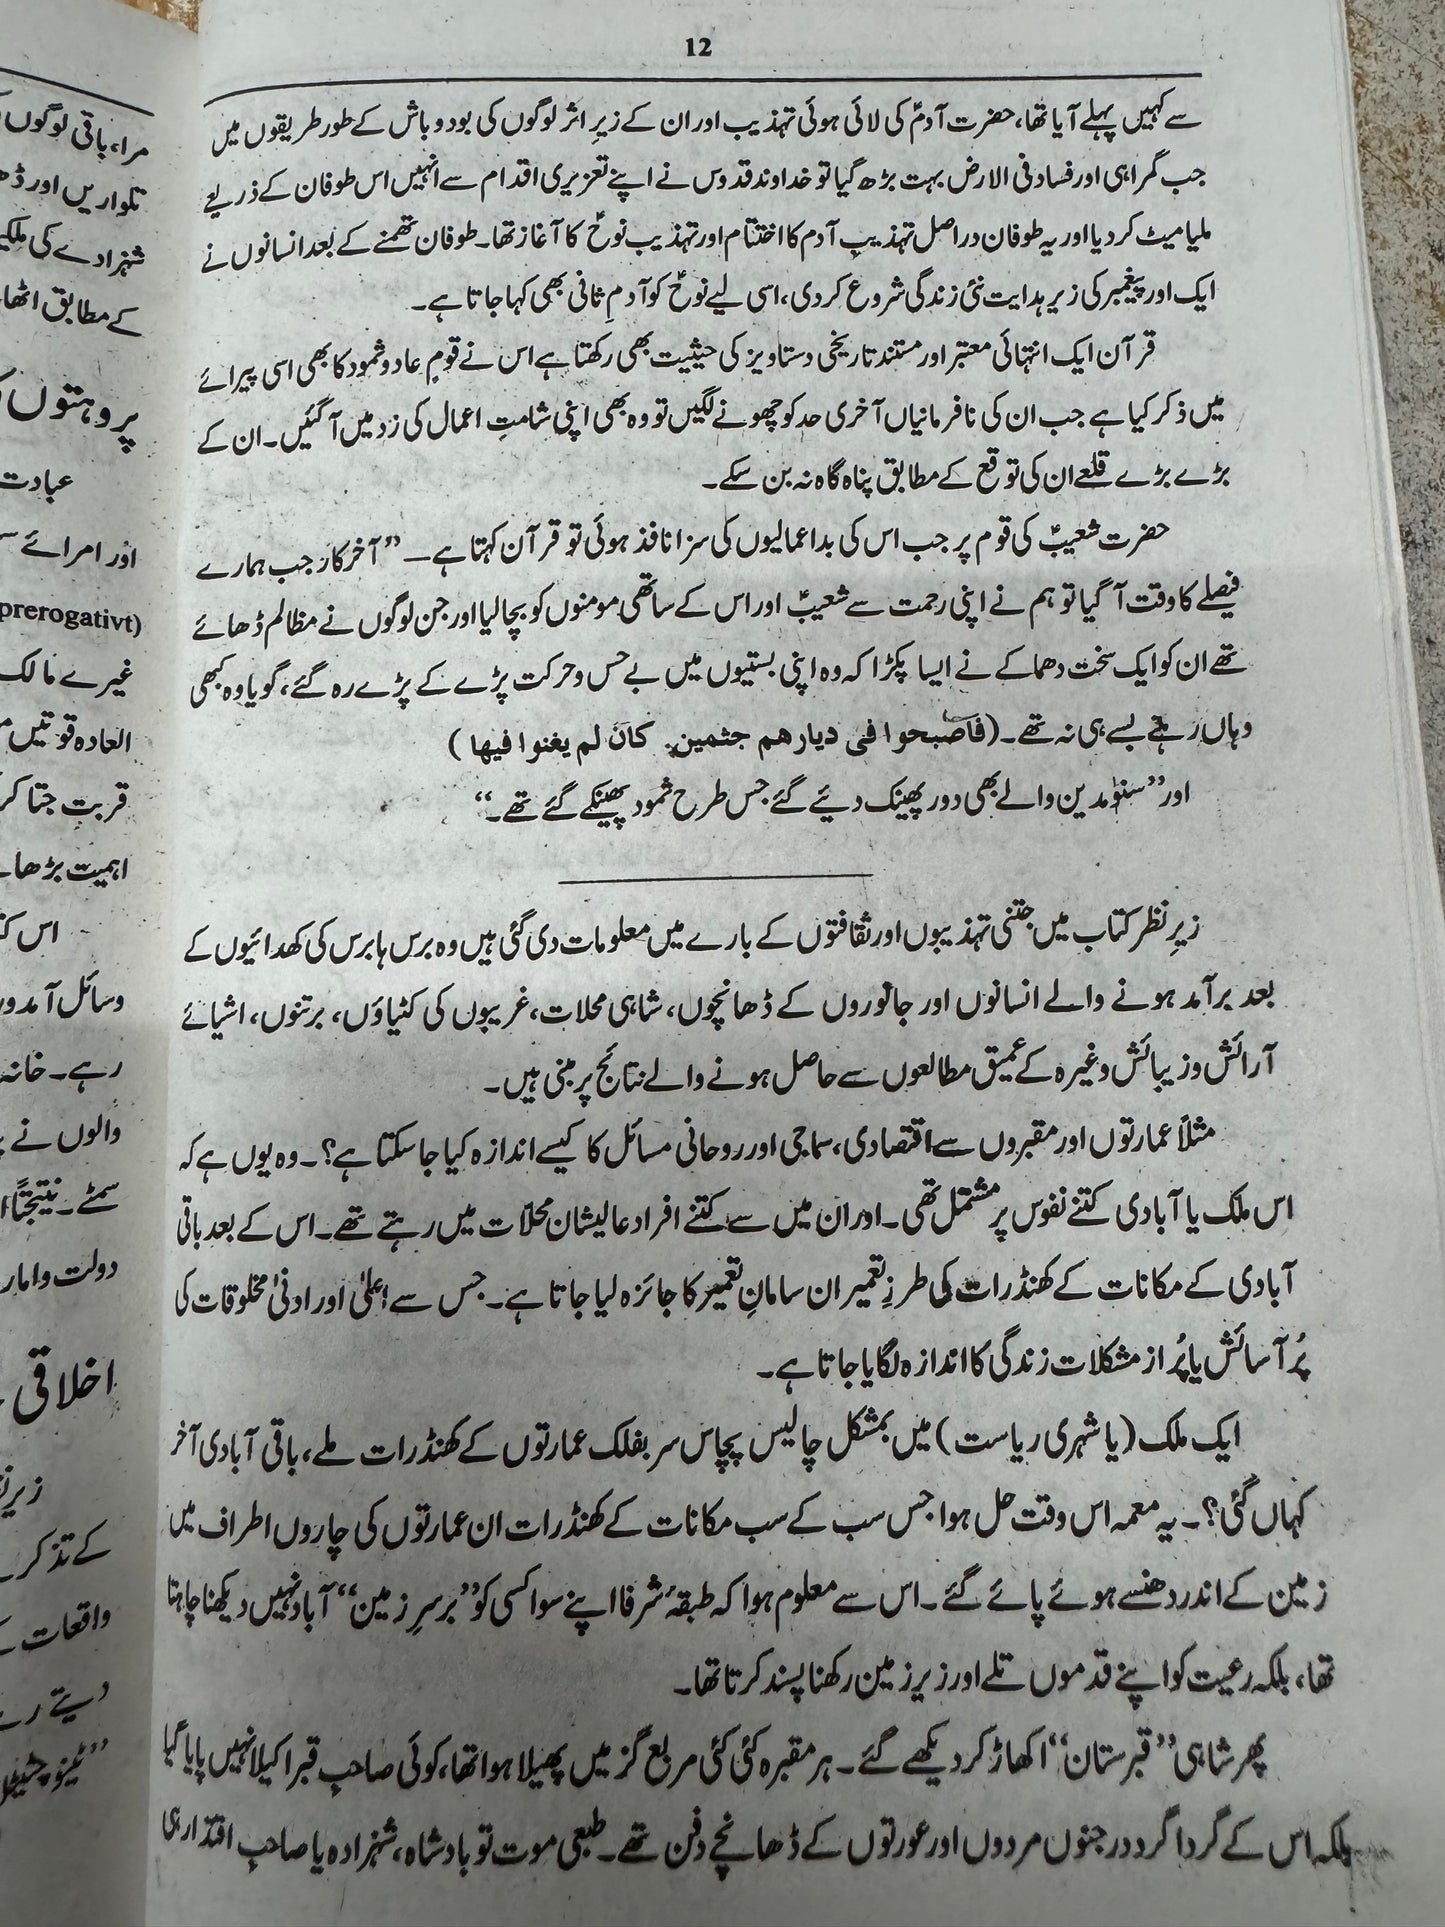 12
سے کہیں پہلے آیا تھا، حضرت آدمؑ کی لائی ہوئی تہذیب اور ان کے زیرِ اثر لوگوں کی بود و باش کے طور طریقوں میں
جب گمراہی اور فساد فی الارض بہت بڑھ گیا تو خداوند قدوس نے اپنے تعزیری اقدام سے انہیں اس طوفان کے ذریعے
ملیامیٹ کر دیا اور یہ طوفان دراصل تہذیبِ آدم کا اختتام اور تہذیب نوحؑ کا آغاز تھا۔ طوفان تھمنے کے بعد انسانوں نے
ایک اور پیغمبر کی زیر ہدایت نئی زندگی شروع کر دی، اسی لیے نوحؑ کو آدمِ ثانی بھی کہا جاتا ہے۔
قرآن ایک انتہائی معتبر اور مستند تاریخی دستاویز کی حیثیت بھی رکھتا ہے اس نے قومِ عاد و ثمود کا بھی اسی پیرائے
میں ذکر کیا ہے جب ان کی نافرمانیاں آخری حد کو چھونے لگیں تو وہ بھی اپنی شامتِ اعمال کی زد میں آ گئیں۔ ان کے
بڑے بڑے قلعے ان کی توقع کے مطابق پناہ گاہ نہ بن سکے۔
حضرت شعیبؑ کی قوم پر جب اس کی بداعمالیوں کی سزا نافذ ہوئی تو قرآن کہتا ہے۔ ”آخرکار جب ہمارے
فیصلے کا وقت آ گیا تو ہم نے اپنی رحمت سے شعیبؑ اور اس کے ساتھی مومنوں کو بچا لیا اور جن لوگوں نے مظالم ڈھائے
تھے ان کو ایک سخت دھماکے نے ایسا پکڑا کہ وہ اپنی بستیوں میں بے حس و حرکت پڑے کے پڑے رہ گئے، گویا وہ کبھی
وہاں رہتے بسے ہی نہ تھے۔ (فاصبحوا فی دیارھم جثمین۔ کان لم یغنوا فیھا)
اور ”سنو مدین والے بھی دور پھینک دیئے گئے جس طرح ثمود پھینکے گئے تھے۔“
زیرِ نظر کتاب میں جتنی تہذیبوں اور ثقافتوں کے بارے میں معلومات دی گئی ہیں وہ برس ہا برس کی کھدائیوں کے
بعد برآمد ہونے والے انسانوں اور جانوروں کے ڈھانچوں، شاہی محلات، غریبوں کی کٹیاؤں، برتنوں، اشیائے
آرائش و زیبائش وغیرہ کے عمیق مطالعوں سے حاصل ہونے والے نتائج پر مبنی ہیں۔
مثلاً عمارتوں اور مقبروں سے اقتصادی، سماجی اور روحانی مسائل کا کیسے اندازہ کیا جا سکتا ہے؟۔ وہ یوں ہے کہ
اس ملک یا آبادی کتنے نفوس پر مشتمل تھی۔ اور ان میں سے کتنے افراد عالیشان محلات میں رہتے تھے۔ اس کے بعد باقی
آبادی کے مکانات کے کھنڈرات کی طرزِ تعمیر ان سامانِ تعمیر کا جائزہ لیا جاتا ہے۔ جس سے اعلیٰ اور ادنیٰ مخلوقات کی
پُر آسائش یا پُر از مشکلات زندگی کا اندازہ لگایا جاتا ہے۔
ایک ملک (یا شہری ریاست) میں بمشکل چالیس پچاس سر بفلک عمارتوں کے کھنڈرات ملے، باقی آبادی آخر
کہاں گئی؟۔ یہ معمہ اس وقت حل ہوا جس سب کے سب مکانات کے کھنڈرات ان عمارتوں کی چاروں اطراف میں
زمین کے اندر دھنسے ہوئے پائے گئے۔ اس سے معلوم ہوا کہ طبقۂ شرفا اپنے سوا کسی کو ”برسرِ زمین“ آباد نہیں دیکھنا چاہتا
تھا، بلکہ رعیت کو اپنے قدموں تلے اور زیرِ زمین رکھنا پسند کرتا تھا۔
پھر شاہی ”قبرستان“ اکھاڑ کر دیکھے گئے۔ ہر مقبرہ کئی کئی مربع گز میں پھیلا ہوا تھا، کوئی صاحبِ قبر اکیلا نہیں پایا گیا
بلکہ اس کے گردا گرد درجنوں مردوں اور عورتوں کے ڈھانچے دفن تھے۔ طبعی موت تو بادشاہ، شہزادہ یا صاحبِ اقتدار ہی
مرا، باقی لوگوں
تلواریں اور
شہزادے کی
کے مطابق اٹھا
پروہتوں
عبادت
اور امرائے
prerogativt)
غیرے مالک
العادہ قوتیں
قربت جتا کر
اہمیت بڑھا
اس
وسائل آمدو
رہے۔
والوں نے
سمٹے۔ نتیجتاً
دولت و امار
اخلاقی
زیر
کے تذکر
واقعات
دیتے